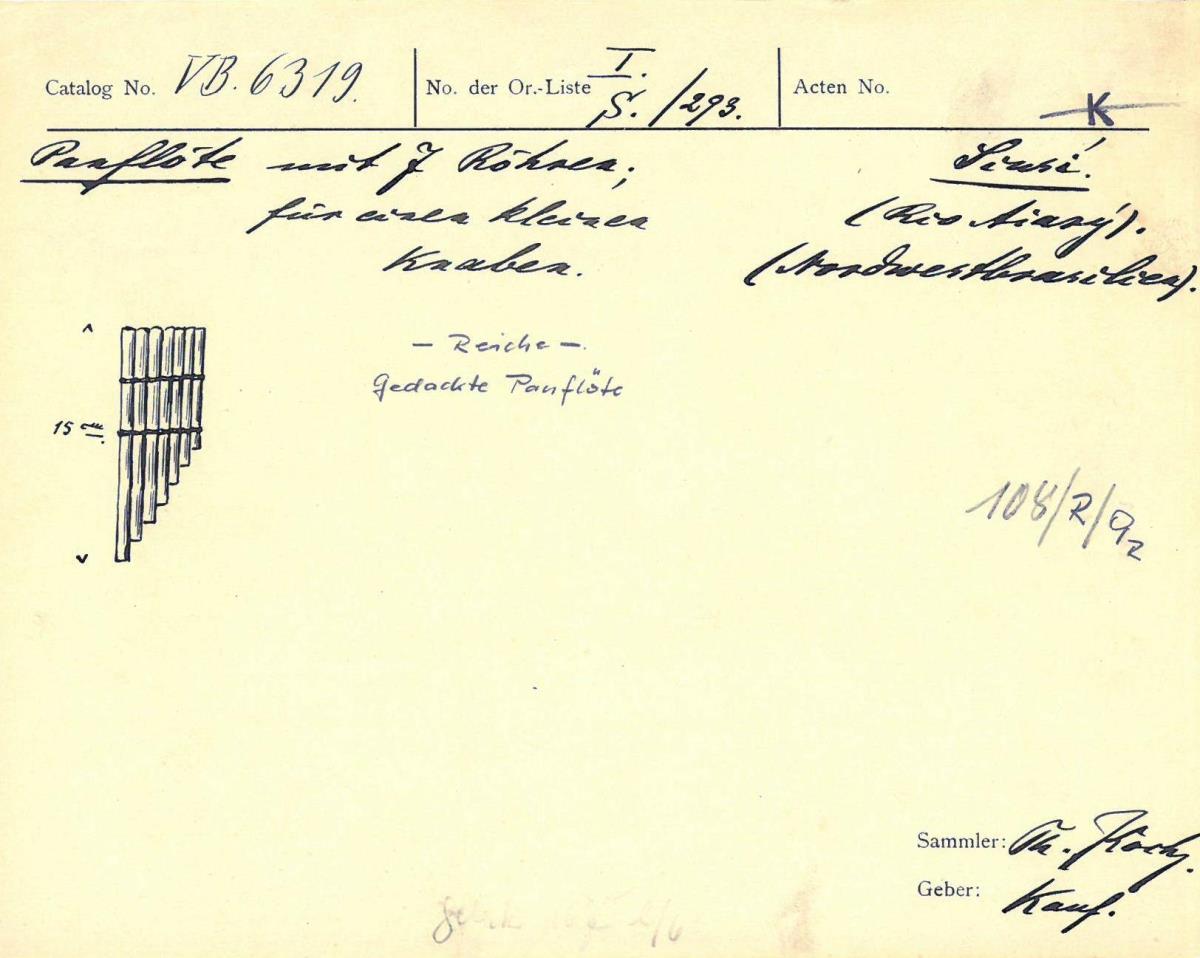 Catalog No. VB. 6319. No. der Or.-Liste I. S. /293. Acten No.
K
Panflöte mit 7 Röhren; Siusí.
für einen kleinen (Rio Aiarý).
Knaben. (Nordwestbrasilien).
— Reihe —.
Gedackte Panflöte
15 cm.
108/R/92
Sammler: Th. Koch.
Geber: Kauf.